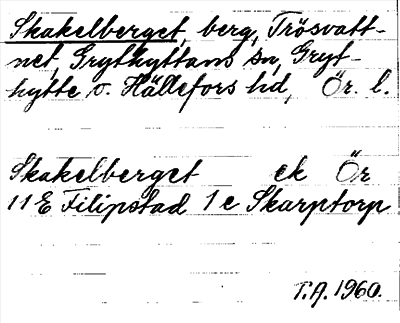 Skakelberget, berg, Trösvatt-
net, Grythyttans sn, Gryt-
hytte o. Hällefors hd, Ör. l.
Skakelberget ek Ör
11 E Filipstad 1 c Skarptorp
T.A. 1960.